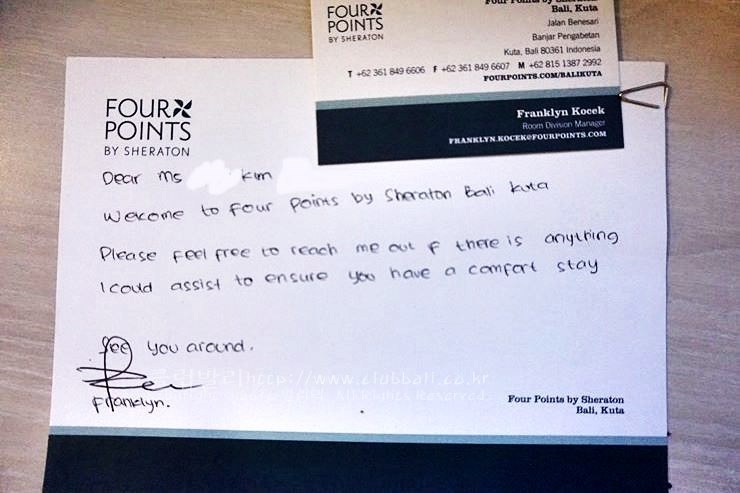 FOUR
POINTS
BY SHERATON
Four Points by Sheraton
Bali, Kuta
Jalan Benesari
Banjar Pengabetan
Kuta, Bali 80361 Indonesia
T +62 361 849 6606 F +62 361 849 6607 M +62 815 1387 2992
FOURPOINTS.COM/BALIKUTA
Franklyn Kocek
Room Division Manager
FRANKLYN.KOCEK@FOURPOINTS.COM
FOUR
POINTS
BY SHERATON
Dear Ms Kim
Welcome to Four Points by Sheraton Bali Kuta
Please feel free to reach me out if there is anything
I could assist to ensure you have a comfort stay
See you around.
Franklyn.
http://www.clubbali.co.kr
All Rights Reserved.
Four Points by Sheraton
Bali, Kuta